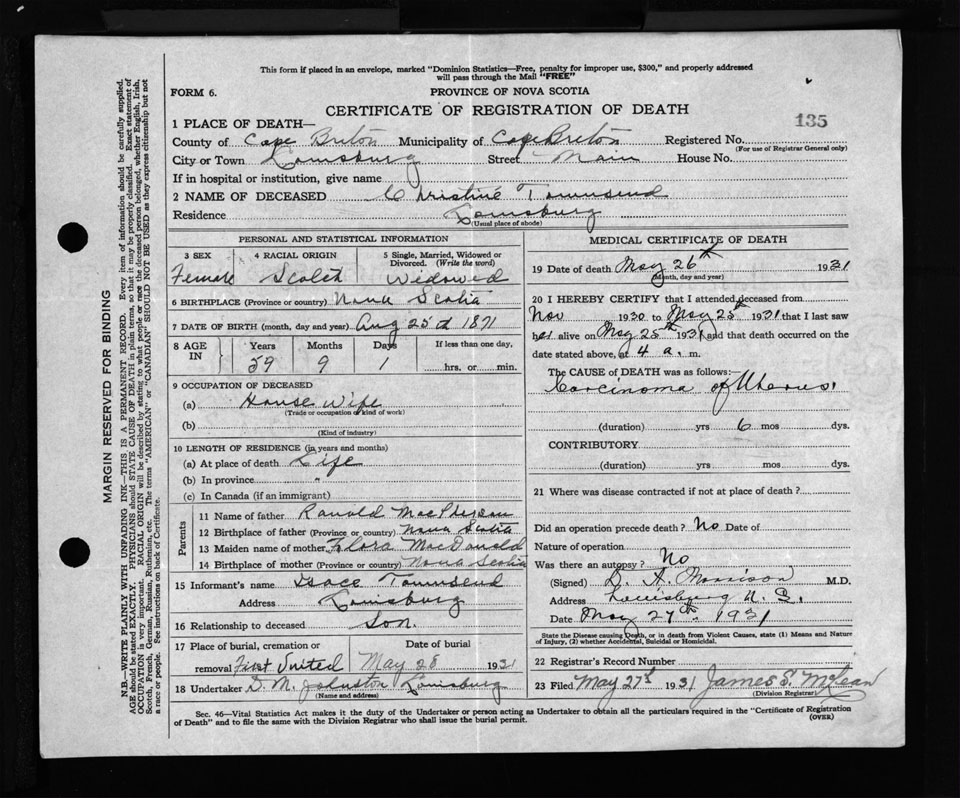 This form if placed in an envelope, marked "Dominion Statistics—Free, penalty for improper use, $300," and properly addressed
will pass through the Mail "FREE"
FORM 6.
PROVINCE OF NOVA SCOTIA
CERTIFICATE OF REGISTRATION OF DEATH
135
1 PLACE OF DEATH—
County of Cape Breton Municipality of Cape Breton Registered No.
(For use of Registrar General only)
City or Town Louisburg Street Main House No.
If in hospital or institution, give name
2 NAME OF DECEASED Christine Townsend
Residence Louisburg
(Usual place of abode)
PERSONAL AND STATISTICAL INFORMATION
3 SEX 4 RACIAL ORIGIN 5 Single, Married, Widowed or
Divorced. (Write the word)
Female Scotch Widowed
6 BIRTHPLACE (Province or country) Nova Scotia
7 DATE OF BIRTH (month, day and year) Aug 25th 1871
8 AGE IN Years Months Days If less than one day,
59 9 1 hrs. or min.
9 OCCUPATION OF DECEASED
(a) House Wife
(Trade or occupation or kind of work)
(b)
(Kind of industry)
10 LENGTH OF RESIDENCE (in years and months)
(a) At place of death Life
(b) In province "
(c) In Canada (if an immigrant)
Parents
11 Name of father Ranold MacPherson
12 Birthplace of father (Province or country) Nova Scotia
13 Maiden name of mother Flora MacDonald
14 Birthplace of mother (Province or country) Nova Scotia
15 Informant's name Isace Townsend
Address Louisburg
16 Relationship to deceased Son.
17 Place of burial, cremation or Date of burial
removal First United May 28 1931
18 Undertaker D. M. Johnston Louisburg
(Name and address)
MEDICAL CERTIFICATE OF DEATH
19 Date of death May 26th 1931
(Month, day and year)
20 I HEREBY CERTIFY that I attended deceased from
Nov 1930 to May 25th 1931 that I last saw
her alive on May 25th 1931 and that death occurred on the
date stated above, at 4 a. m.
The CAUSE OF DEATH was as follows:
Carcinoma of Uterus.
(duration) yrs 6 mos dys.
CONTRIBUTORY
(duration) yrs mos dys.
21 Where was disease contracted if not at place of death?
Did an operation precede death? No Date of
Nature of operation
Was there an autopsy? No
(Signed) D. A. Morrison M.D.
Address Louisburg N. S.
Date May 27th 1931
State the Disease causing Death, or in death from Violent Causes, state (1) Means and Nature
of Injury, (2) whether Accidental, Suicidal or Homicidal.
22 Registrar's Record Number
23 Filed May 27th 1931 James S. McLean
(Division Registrar)
Sec. 46—Vital Statistics Act makes it the duty of the Undertaker or person acting as Undertaker to obtain all the particulars required in the "Certificate of Registration
of Death" and to file the same with the Division Registrar who shall issue the burial permit.
(OVER)
MARGIN RESERVED FOR BINDING
N.B.—WRITE PLAINLY WITH UNFADING INK—THIS IS A PERMANENT RECORD. Every item of information should be carefully supplied.
AGE should be stated EXACTLY. PHYSICIANS should STATE CAUSE OF DEATH in plain terms, so that it may be properly classified. Exact statement of
OCCUPATION is very important. RACIAL ORIGIN will be described by stating to what people or race the deceased person belonged, whether English, Irish,
Scotch, French, German, Russian, Ruthenian, etc. The terms "AMERICAN" or "CANADIAN" SHOULD NOT BE USED as they express citizenship but not
a race or people. See instructions on back of Certificate.